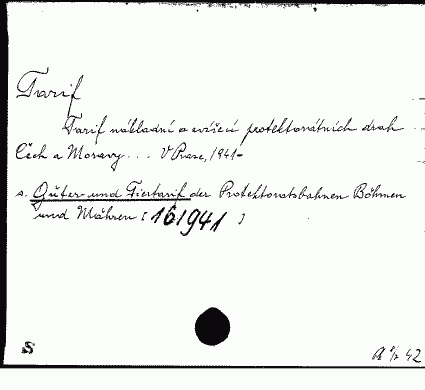 Tarif
Tarif nákladní a zvířecí protektorátních drah
Čech a Moravy... V Praze, 1941-
s. Güter- und Tiertarif der Protektoratsbahnen Böhmen
und Mähren [161941 ]
S
42